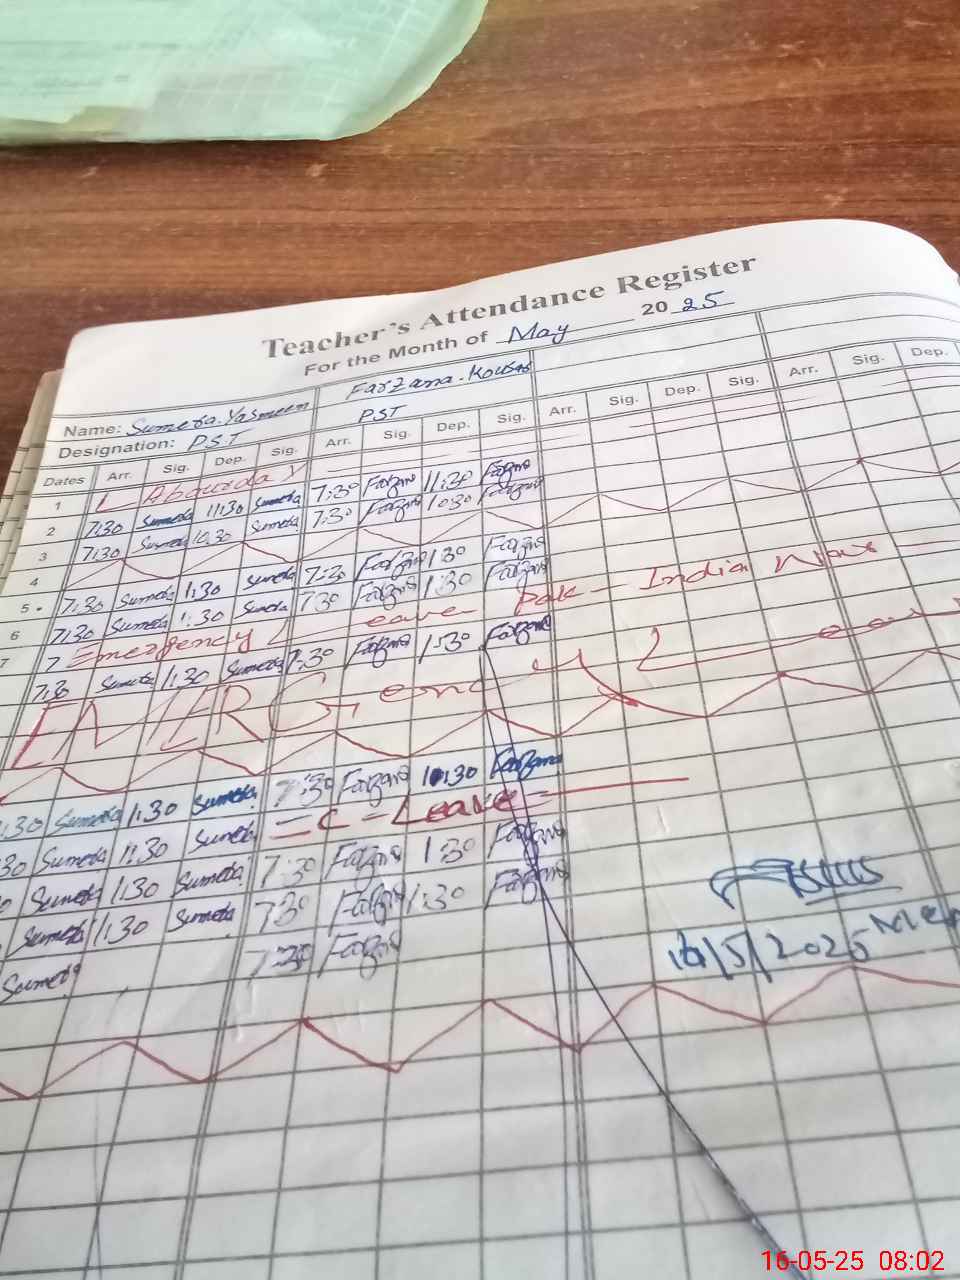 Teacher's Attendance Register
For the Month of May 2025
Name: Sumera.Yasmeen Farzana.Kousar
Designation: PST PST
Dates Arr. Sig. Dep. Sig. Arr. Sig. Dep. Sig. Arr. Sig. Dep. Sig. Arr. Sig. Dep.
1 L
2 7:30 Sumera 11:30 Sumera 7:30 Farzana 11:30 Farzana
3 7:30 Sumera 10:30 Sumera 7:30 Farzana 10:30 Farzana
4
5 7:30 Sumera 1:30 Sumera 7:30 Farzana 1:30 Farzana
6 7:30 Sumera 1:30 Sumera 7:30 Farzana 1:30 Farzana
7 Emergency Leave Pak - India
7:30 Sumera 1:30 Sumera 7:30 Farzana 1:30 Farzana
EMERGency L
:30 Sumera 1:30 Sumera 7:30 Farzana 10:30 Farzana
30 Sumera 11:30 Sumera - C - Leave
Sumera 1:30 Sumera 7:30 Farzana 1:30 Farzana
Sumera 1:30 Sumera 7:30 Farzana 1:30 Farzana
Sumera 7:30 Farzana
16/5/2025
16-05-25 08:02